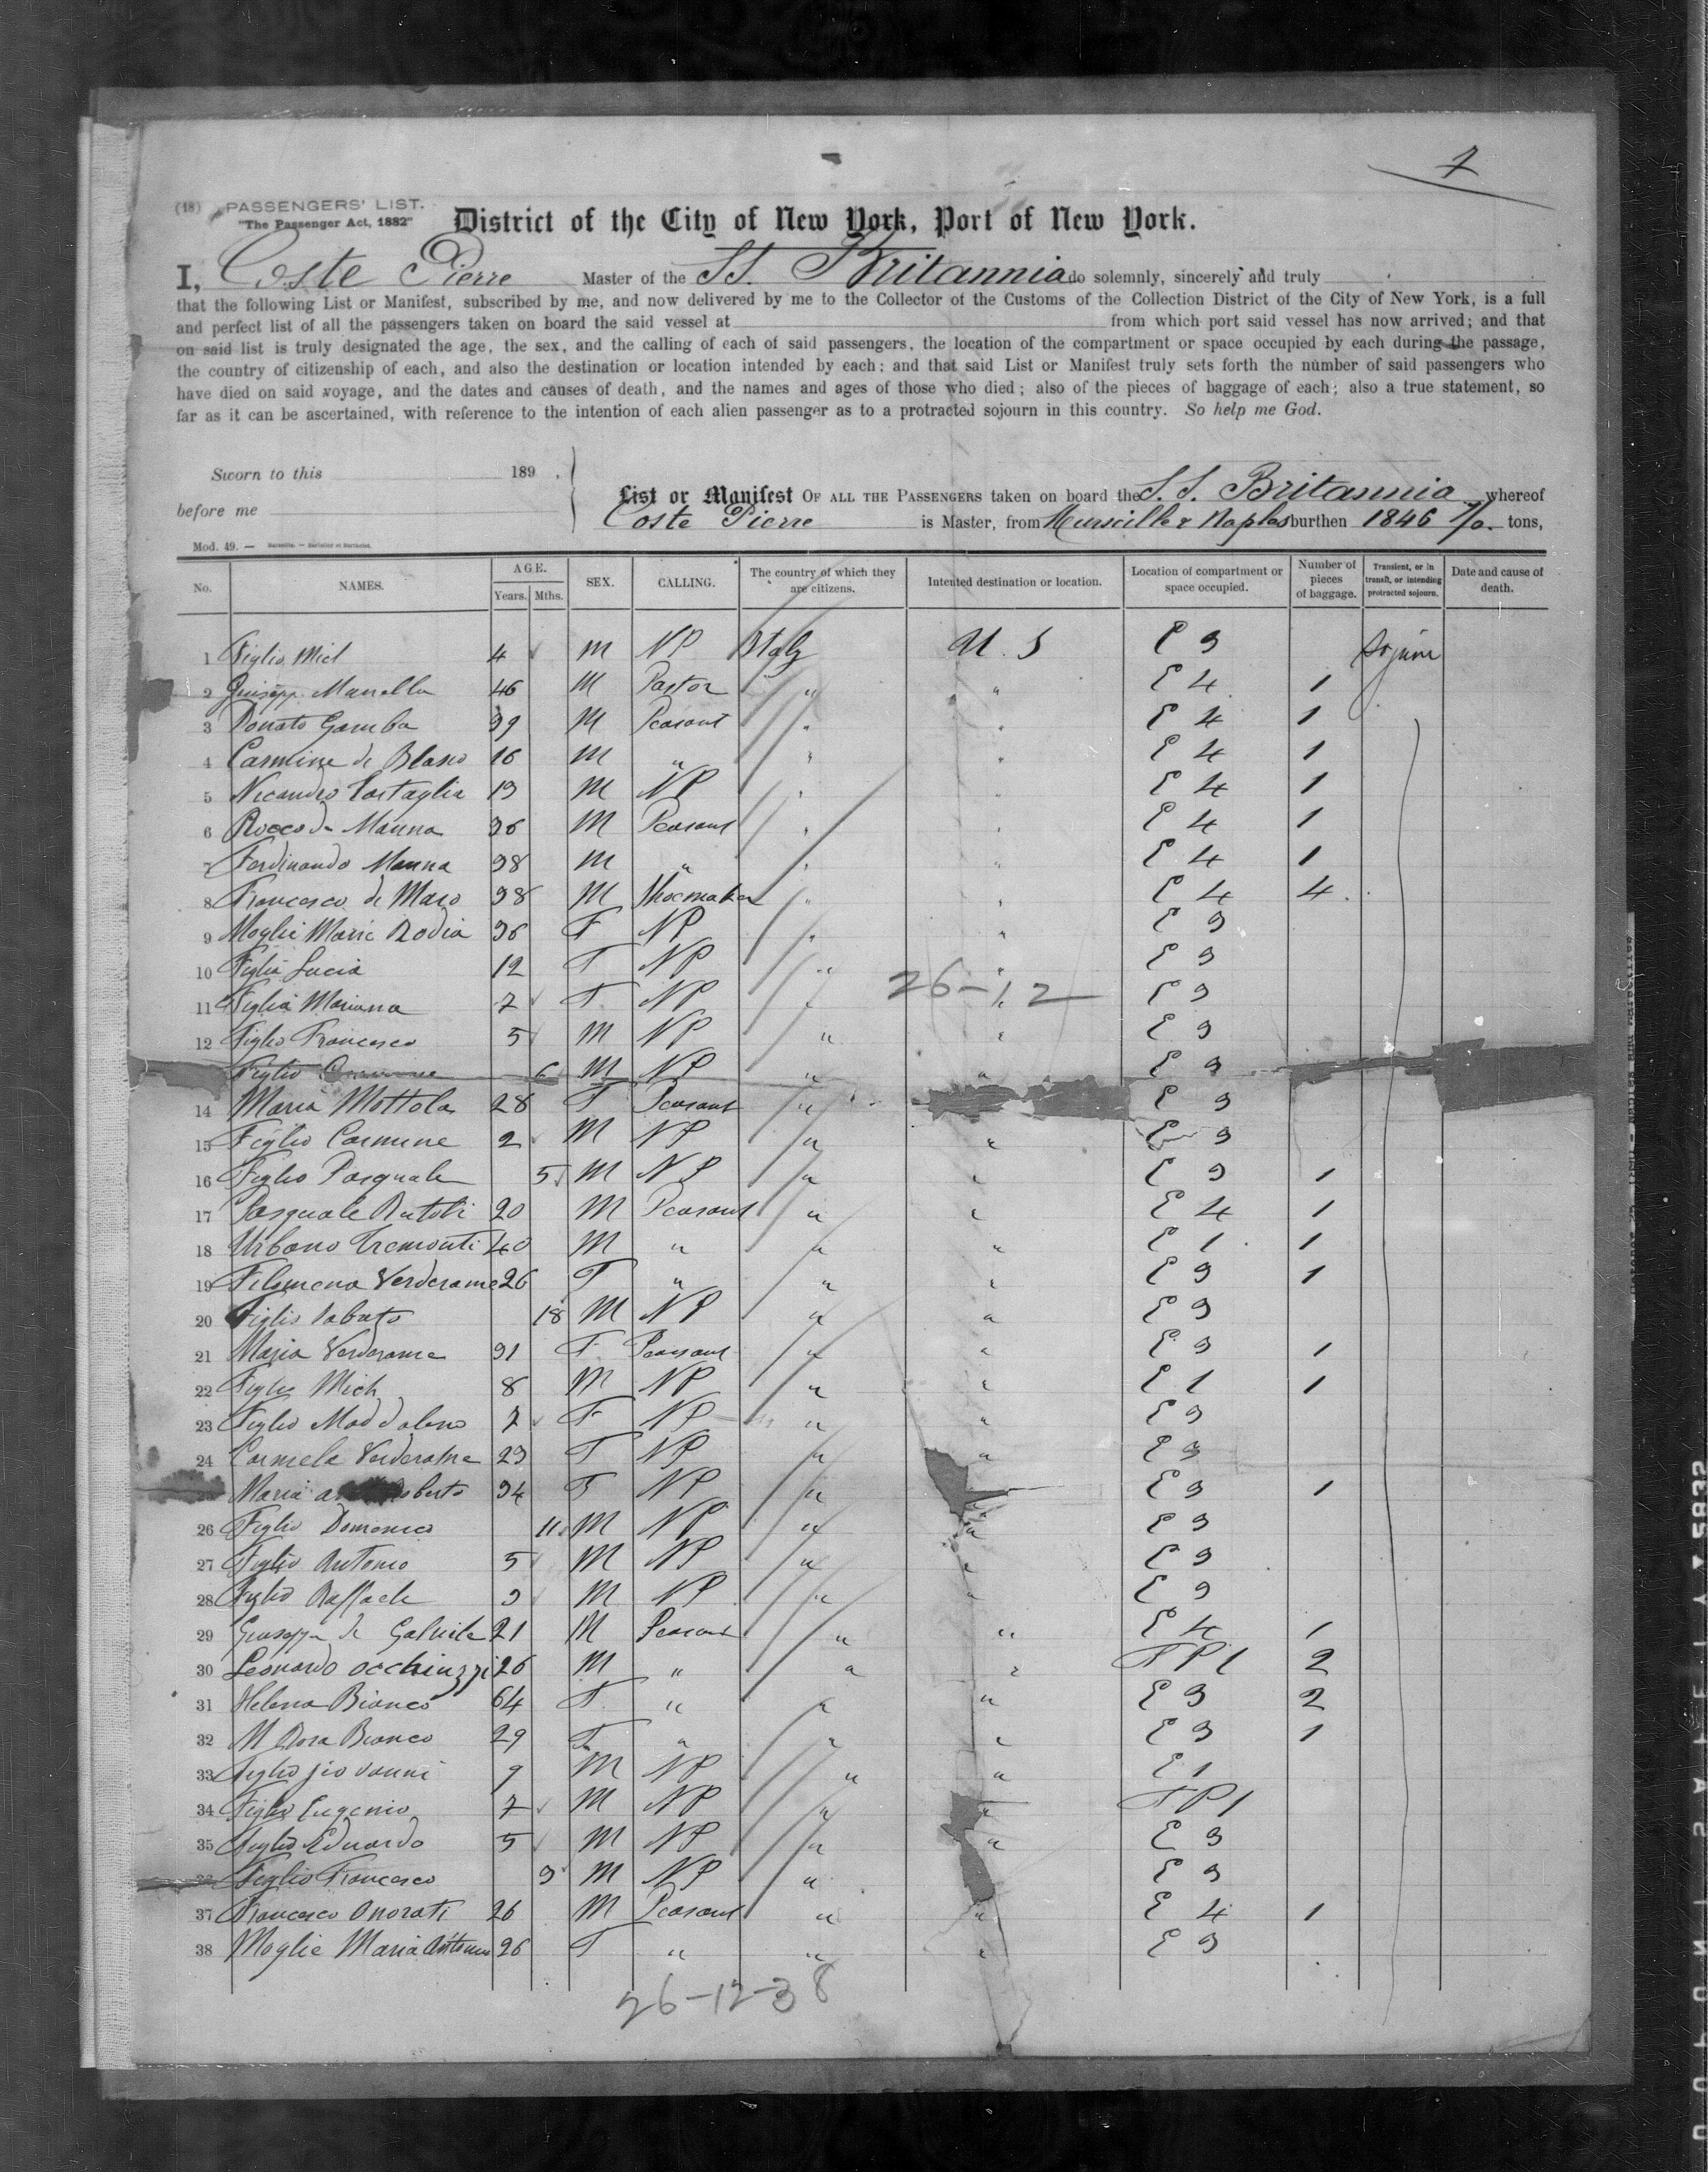 7
(18) PASSENGERS' LIST.
"The Passenger Act, 1882"
District of the City of New York, Port of New York.
I, Coste Pierre Master of the SS. Britannia do solemnly, sincerely and truly
that the following List or Manifest, subscribed by me, and now delivered by me to the Collector of the Customs of the Collection District of the City of New York, is a full
and perfect list of all the passengers taken on board the said vessel at from which port said vessel has now arrived; and that
on said list is truly designated the age, the sex, and the calling of each of said passengers, the location of the compartment or space occupied by each during the passage,
the country of citizenship of each, and also the destination or location intended by each; and that said List or Manifest truly sets forth the number of said passengers who
have died on said voyage, and the dates and causes of death, and the names and ages of those who died; also of the pieces of baggage of each; also a true statement, so
far as it can be ascertained, with reference to the intention of each alien passenger as to a protracted sojourn in this country. So help me God.
Sworn to this 189 .
before me
List or Manifest OF ALL THE PASSENGERS taken on board the S.S. Britannia whereof
Coste Pierre is Master, from Marseille & Naples burthen 1846 tons,
Mod. 49. —
No. NAMES. AGE. Years. Mths. SEX. CALLING. The country of which they are citizens. Intented destination or location. Location of compartment or space occupied. Number of pieces of baggage. Transient, or in transit, or intending protracted sojourn. Date and cause of death.
1 Figlio Mich 4 M NP Italy U. S E 3
2 Giusepp. Manella 46 M Pastor " " E 4 1
3 Donato Gamba 39 M Peasant " " E 4 1
4 Carmine de Blasio 16 M " " " E 4 1
5 Nicandro Tortaglia 19 M NP " " E 4 1
6 Rocco de Manna 36 M Peasant " " E 4 1
7 Ferdinando Manna 38 M " " " E 4 1
8 Francesco de Maso 38 M Shoemaker " " E 4 4
9 Moglie Maria Rodia 36 F NP " " E 3
10 Figlia Lucia 12 F NP " " E 3
26-12
11 Figlia Mariana 7 F NP " " E 3
12 Figlio Francesco 5 M NP " " E 3
Figlio 6 M NP " " E 3
14 Maria Mottola 28 F Peasant " E 3
15 Figlio Carmine 2 M NP " " E 3
16 Figlio Pasquale 5 M NP " " E 3 1
17 Pasquale 20 M Peasant " " E 4 1
18 Urbano Tremonti 40 M " " " E 1 1
19 Filomena Verderame 26 F " " " E 3 1
20 Figlio Sabato 18 M NP " " E 3
21 Maria Verderame 31 F Peasant " " E 3 1
22 Figlio Mich 8 M NP " " E 1 1
23 Figlio Maddalena 7 F NP " " E 3
24 Carmela Verderame 23 F NP " " E 3
Maria 34 F NP " " E 3 1
26 Figlio Domenico 11 M NP " " E 3
27 Figlio Antonio 5 M NP " " E 3
28 Figlio Raffaele 3 M NP " " E 3
29 Giuseppe de Gabriele 21 M Peasant " " E 4 1
30 Leonardo Occhiuzzi 26 M " " " FP1 2
31 Helena Bianco 64 F " " " E 3 2
32 M Rosa Bianco 29 F " " " E 3 1
33 Figlio Giovanni 9 M NP " " E 1
34 Figlio Eugenio 7 M NP " " FP1
35 Figlio Eduardo 5 M NP " " E 3
Figlio Francesco 9 M NP " E 3
37 Francesco Onorati 26 M Peasant " " E 4 1
38 Moglie Maria Antonia 26 F " " " E 3
26-12-38